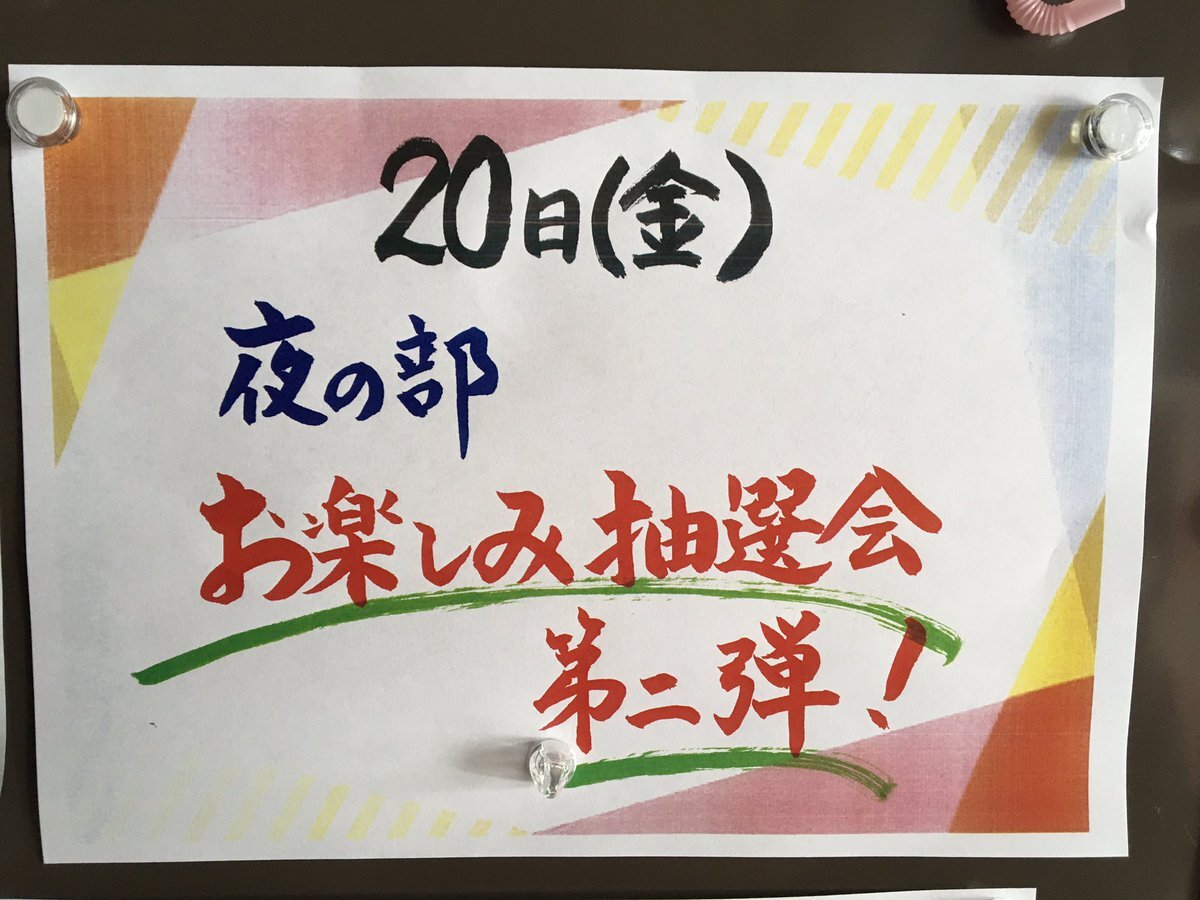 20日(金)
夜の部
お楽しみ抽選会
第二弾！